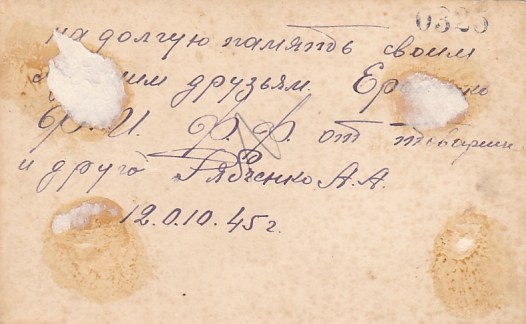 0325
на долгую память своим
друзьям.
Ф. И. Ф. Ф. от товарищ
и друга Рябченко А. А.
12.0.10.45г.